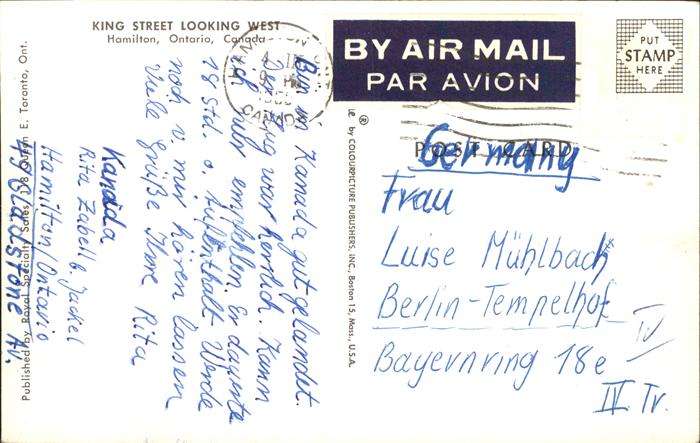 KING STREET LOOKING WEST
Hamilton, Ontario, Canada
BY AIR MAIL
PAR AVION
PUT
STAMP
HERE
CANADA
Bin in Kanada gut gelandet.
Der Flug war herrlich. Kann
ich nur empfehlen. Er dauerte
18 Std. o. Aufenthalt. Werde
noch v. mir hören lassen
Viele Grüße Ihre Rita
Kanada
Rita Zabell b. Jackel
Hamilton/Ontario
49 Gladstone Av.
Published by Royal Specialty Sales, 118 Queen E. Toronto, Ont.
by COLOURPICTURE PUBLISHERS, INC., Boston 15, Mass., U.S.A.
POST CARD
Germany
Frau
Luise Mühlbach
Berlin-Tempelhof
Bayernring 18e
IV. Tr.